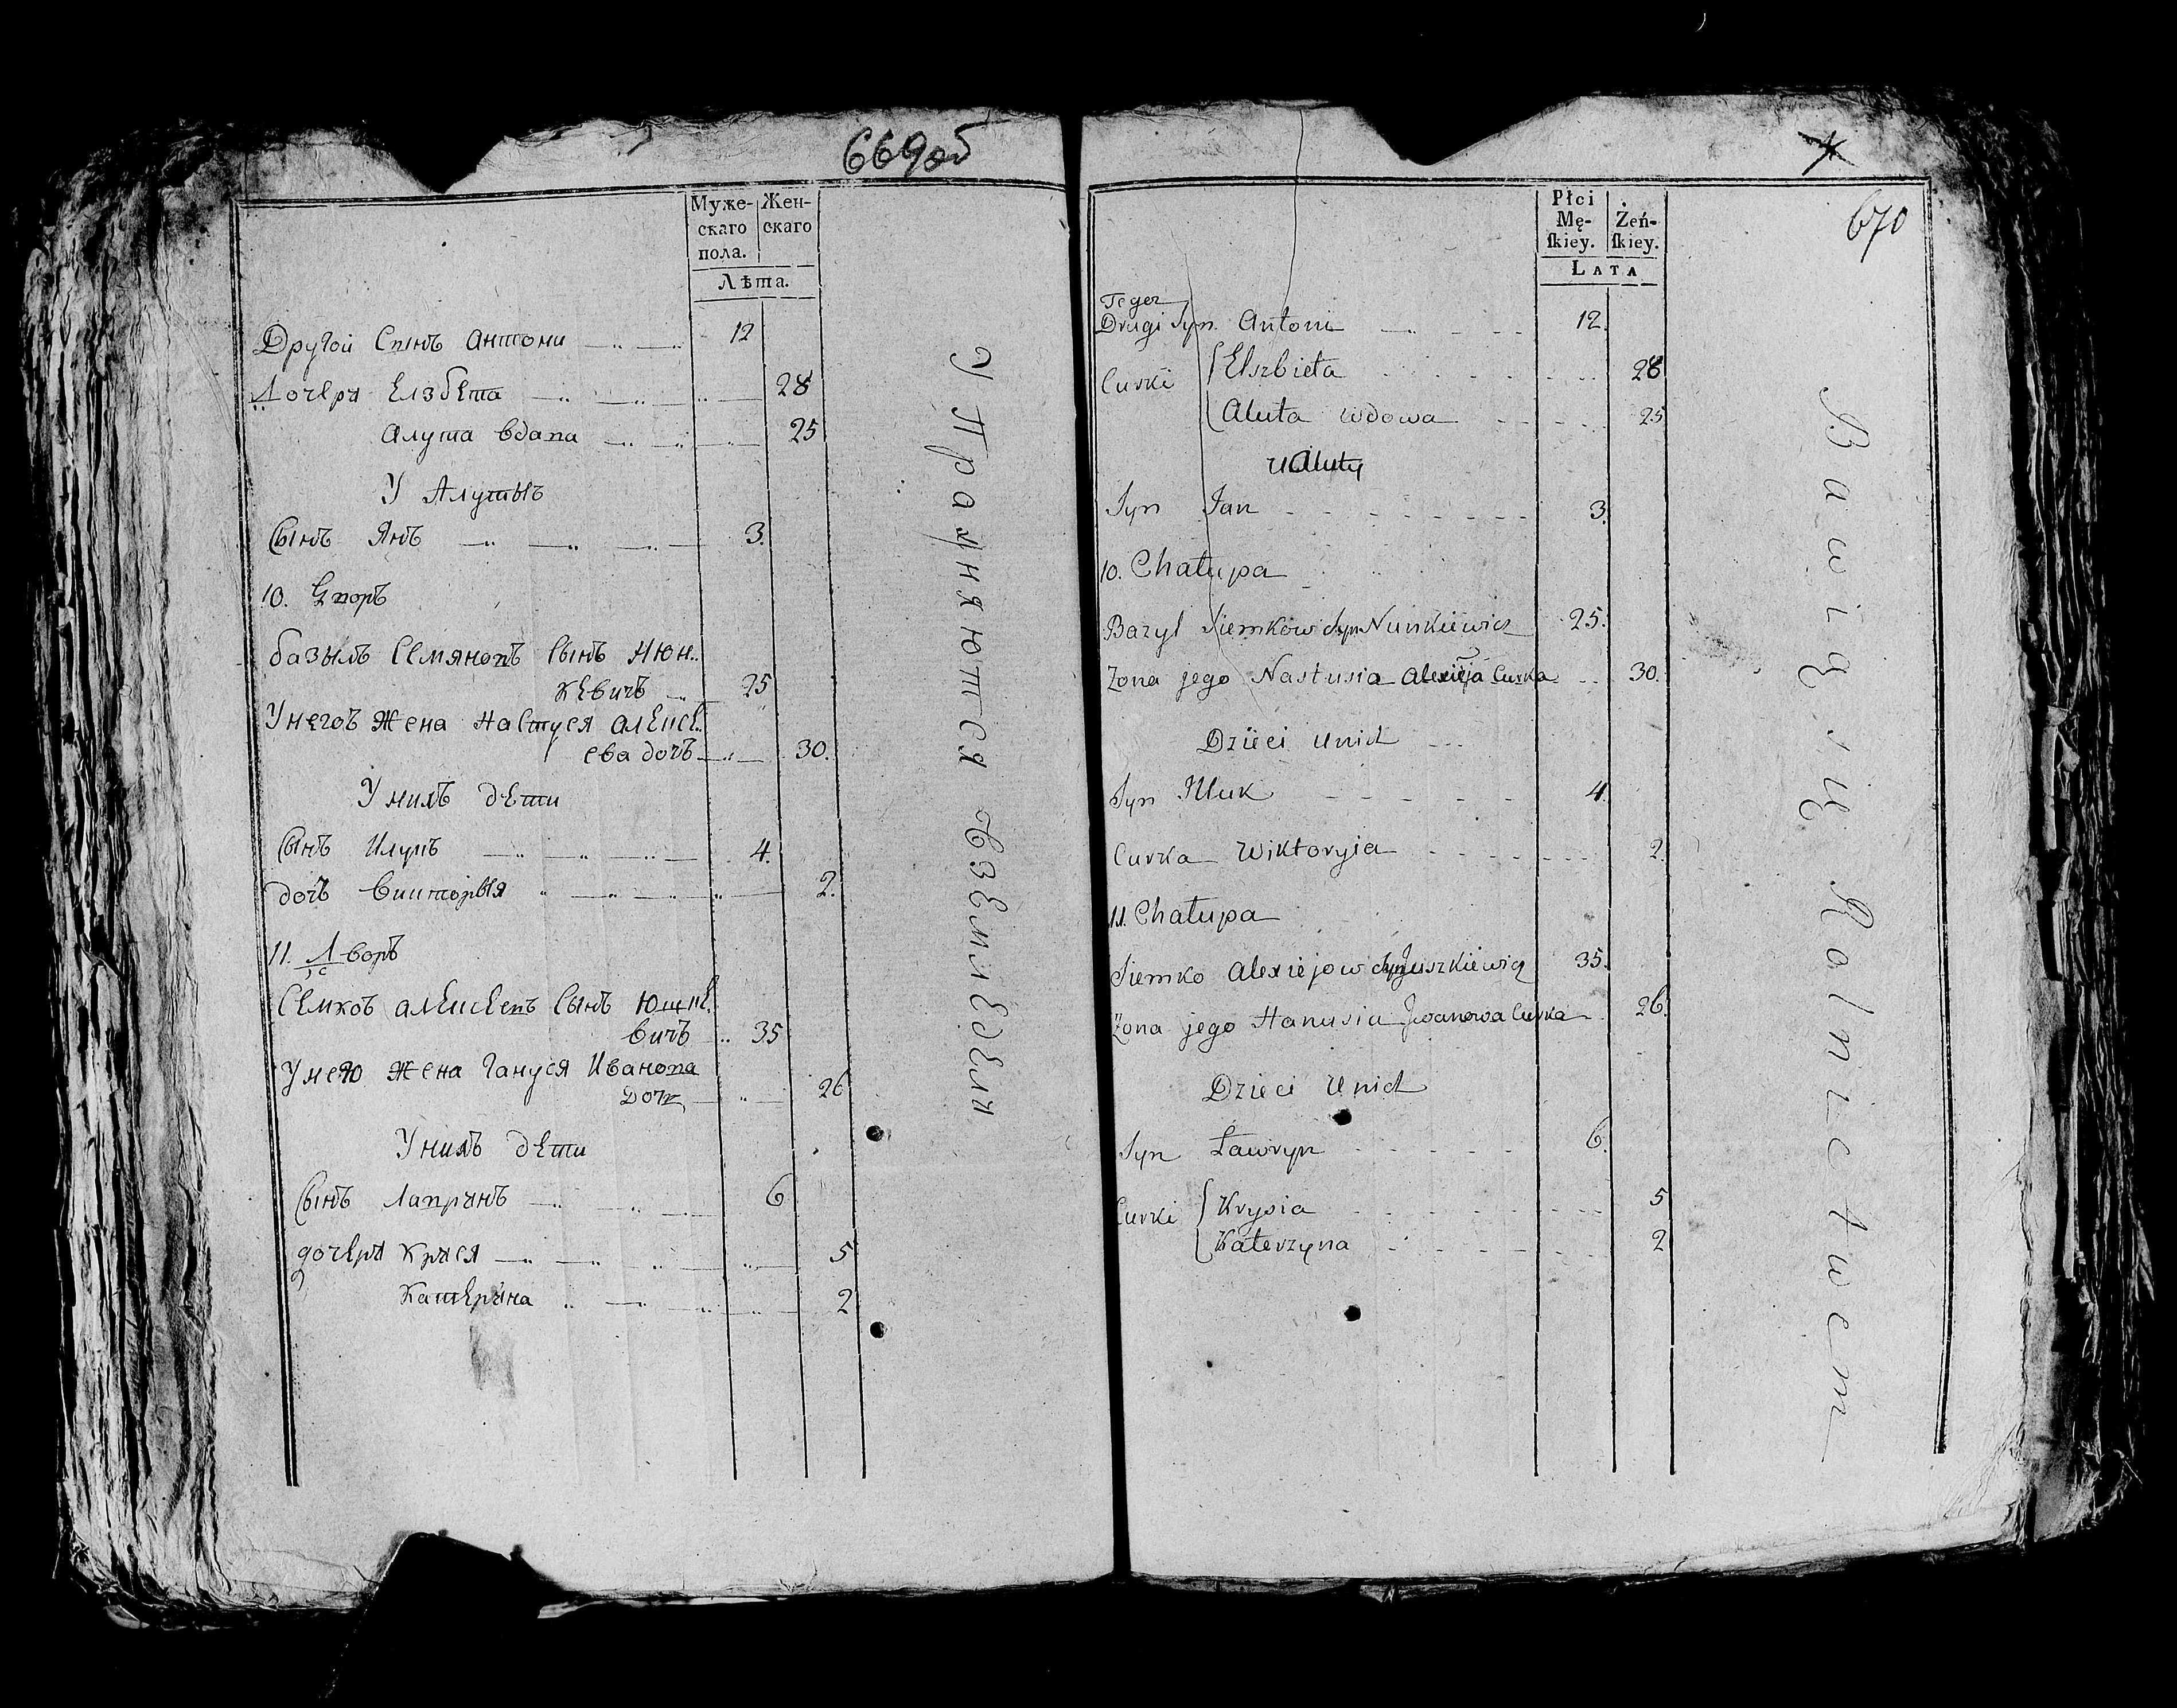 669об
Муже-
скаго
пола.
Жен-
скаго
Лѣта.
Другой Сынъ Антони 12
Дочеря Елзбета 28
Алута вдапа 25
У Алутыъ
Сынъ Янъ 3.
10. Дворъ
Базыль Семяновъ Сынъ Нюн..
кевичъ 25
Унегоъ Жена Настуся Алексѣ..
ева дочъ 30.
Унихъ дети
Сынъ Илукъ 4.
дочъ Викторыя 2.
11. Дворъ
Семкоъ Алексеевъ Сынъ Юшке.
вичъ 35
Унего Жена Гануся Иванова
дочъ 26
Унихъ дети
Сынъ Лаврынъ 6
дочеря Крыся 5
Катерына 2
Упражняются въ Земледели
670
Płci
Mę-
ſkiey.
Żeń-
ſkiey.
LATA
Tegoz
Drugi Syn Antoni 12.
Curki Elszbieta 28
Aluta wdowa 25
u Aluty
Syn Jan 3.
10. Chałupa
Bazyl Siemkow Syn Nunkiewicz 25.
Zona jego Nastusia Alexieja Curka 30.
Dzieci Unich
Syn Illuk 4.
Curka Wiktoryia 2.
11. Chałupa
Siemko Alexiejow Syn Juszkiewicz 35.
Zona jego Hanusia Jwanowa Curka 26.
Dzieci Unich
Syn Ławryn 6.
Curki Krysia 5
Katerzyna 2
Bawią się Rolnictwem